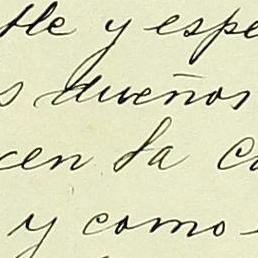 tle y espe
s dueños
cen la ca
y como